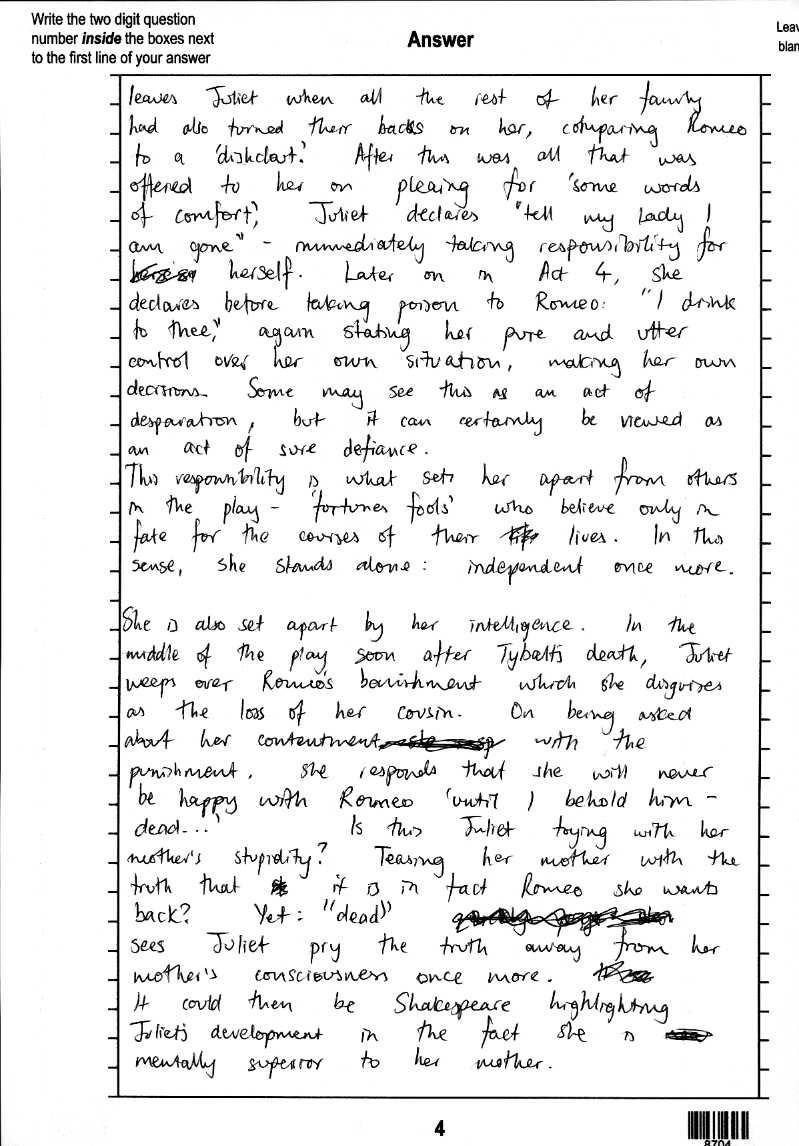 Write the two digit question
number inside the boxes next
to the first line of your answer
Answer
Leav
blan
leaves Juliet when all the rest of her family
had also turned their backs on her, comparing Romeo
to a 'dishclout.' After this was all that was
offered to her on pleaing for 'some words
of comfort', Juliet declares "tell my Lady I
am gone" - immediately taking responsibility for
herself. Later on in Act 4, she
declares before taking poison to Romeo: "I drink
to thee," again stating her pure and utter
control over her own situation, making her own
decisions. Some may see this as an act of
desparation, but it can certainly be viewed as
an act of sure defiance.
This responsibility is what sets her apart from others
in the play - 'fortunes fools' who believe only in
fate for the courses of their lives. In this
sense, she stands alone: independent once more.
She is also set apart by her intelligence. In the
middle of the play soon after Tybalt's death, Juliet
weeps over Romeo's banishment which she disguises
as the loss of her cousin. On being asked
about her contentment with the
punishment, she responds that she will never
be happy with Romeo 'until I behold him -
dead...' Is this Juliet toying with her
mother's stupidity? Teasing her mother with the
truth that it is in fact Romeo she wants
back? Yet: "dead"
sees Juliet pry the truth away from her
mother's consciousness once more.
It could then be Shakespeare highlighting
Juliet's development in the fact she is
mentally superior to her mother.
4
8704